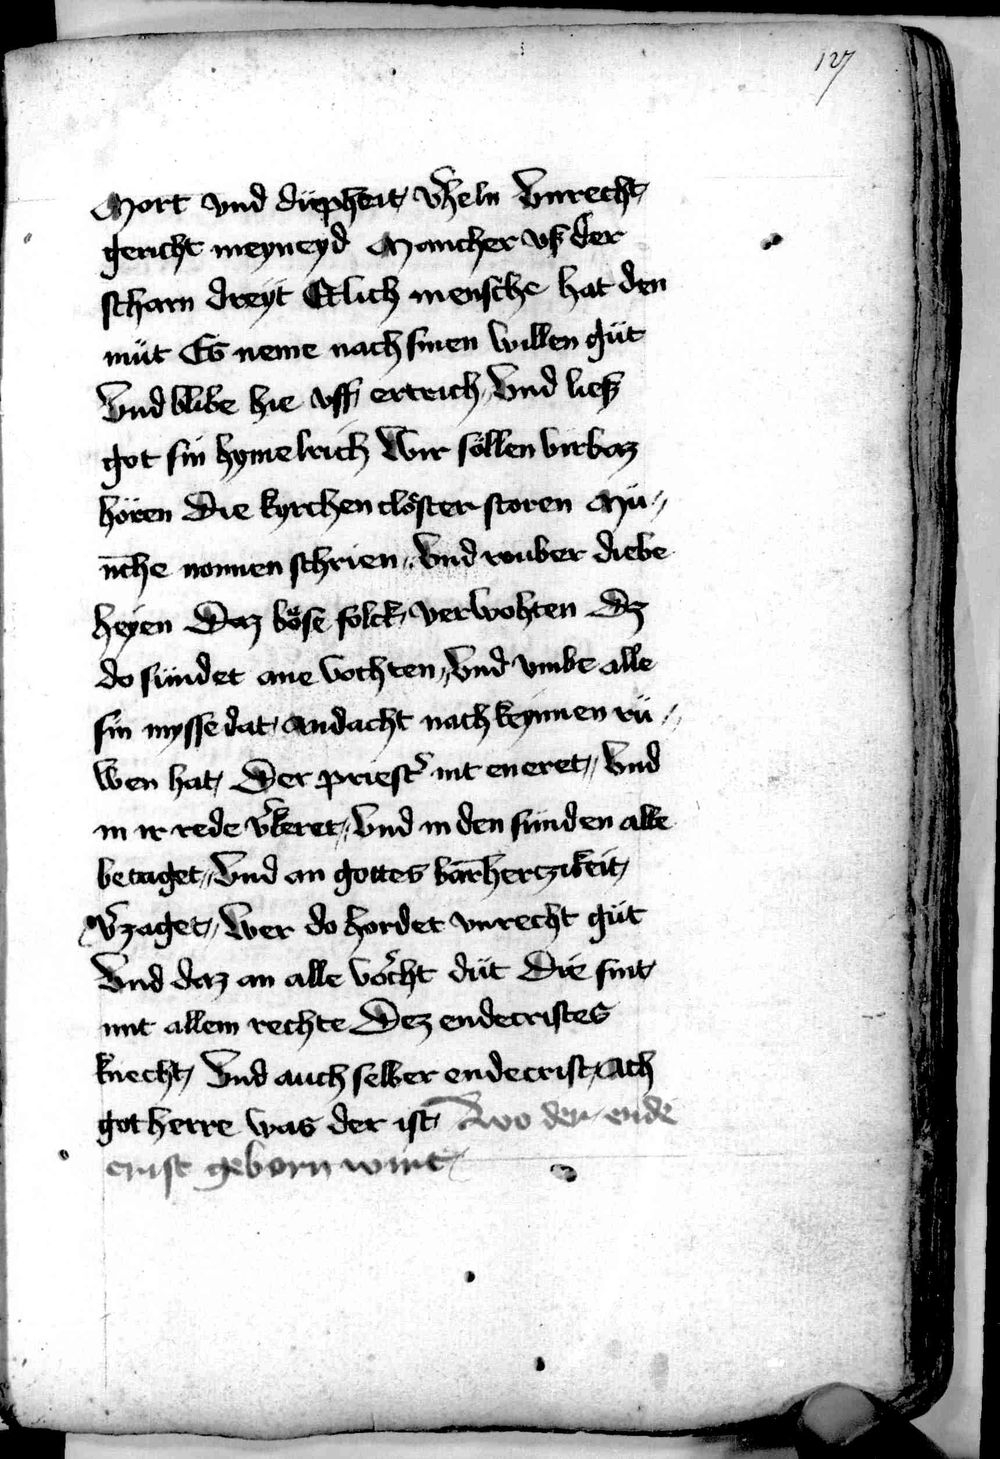 127
Mort vnd düpheit v̉heln Vnrecht
gericht meyneyd Mancher vß der
scharn dreyt Etlich mensche hat den
müt Es neme nach sinen willen güt
Vnd blibe hie vff ertrich Vnd ließ
got sin hymelrich Wir söllen virbaz
hören Die kyrchen clöster storen Mü//
n̄che nonnen schrien // Vnd rouber diebe
heyen Daz böse folck verwohten Dz
do sündet ane vochten // Vnd vmbe alle
sin myssedat andacht nach keynnen rü//
wen hat Der priest̉ nit eneret // Vnd
in ir rede v̉keret // Vnd in den sünden alle
betaget // Vnd an gottes barm̄hertzikeit
v̉zaget // Wer do hordet vnrecht güt
Vnd daz an alle vo̊rcht düt Die sint
mit allem rechte Dez endecristes
knecht Vnd auch selber endecrist Ach
got herre was der ist Wo der ende
crist geborn wirt